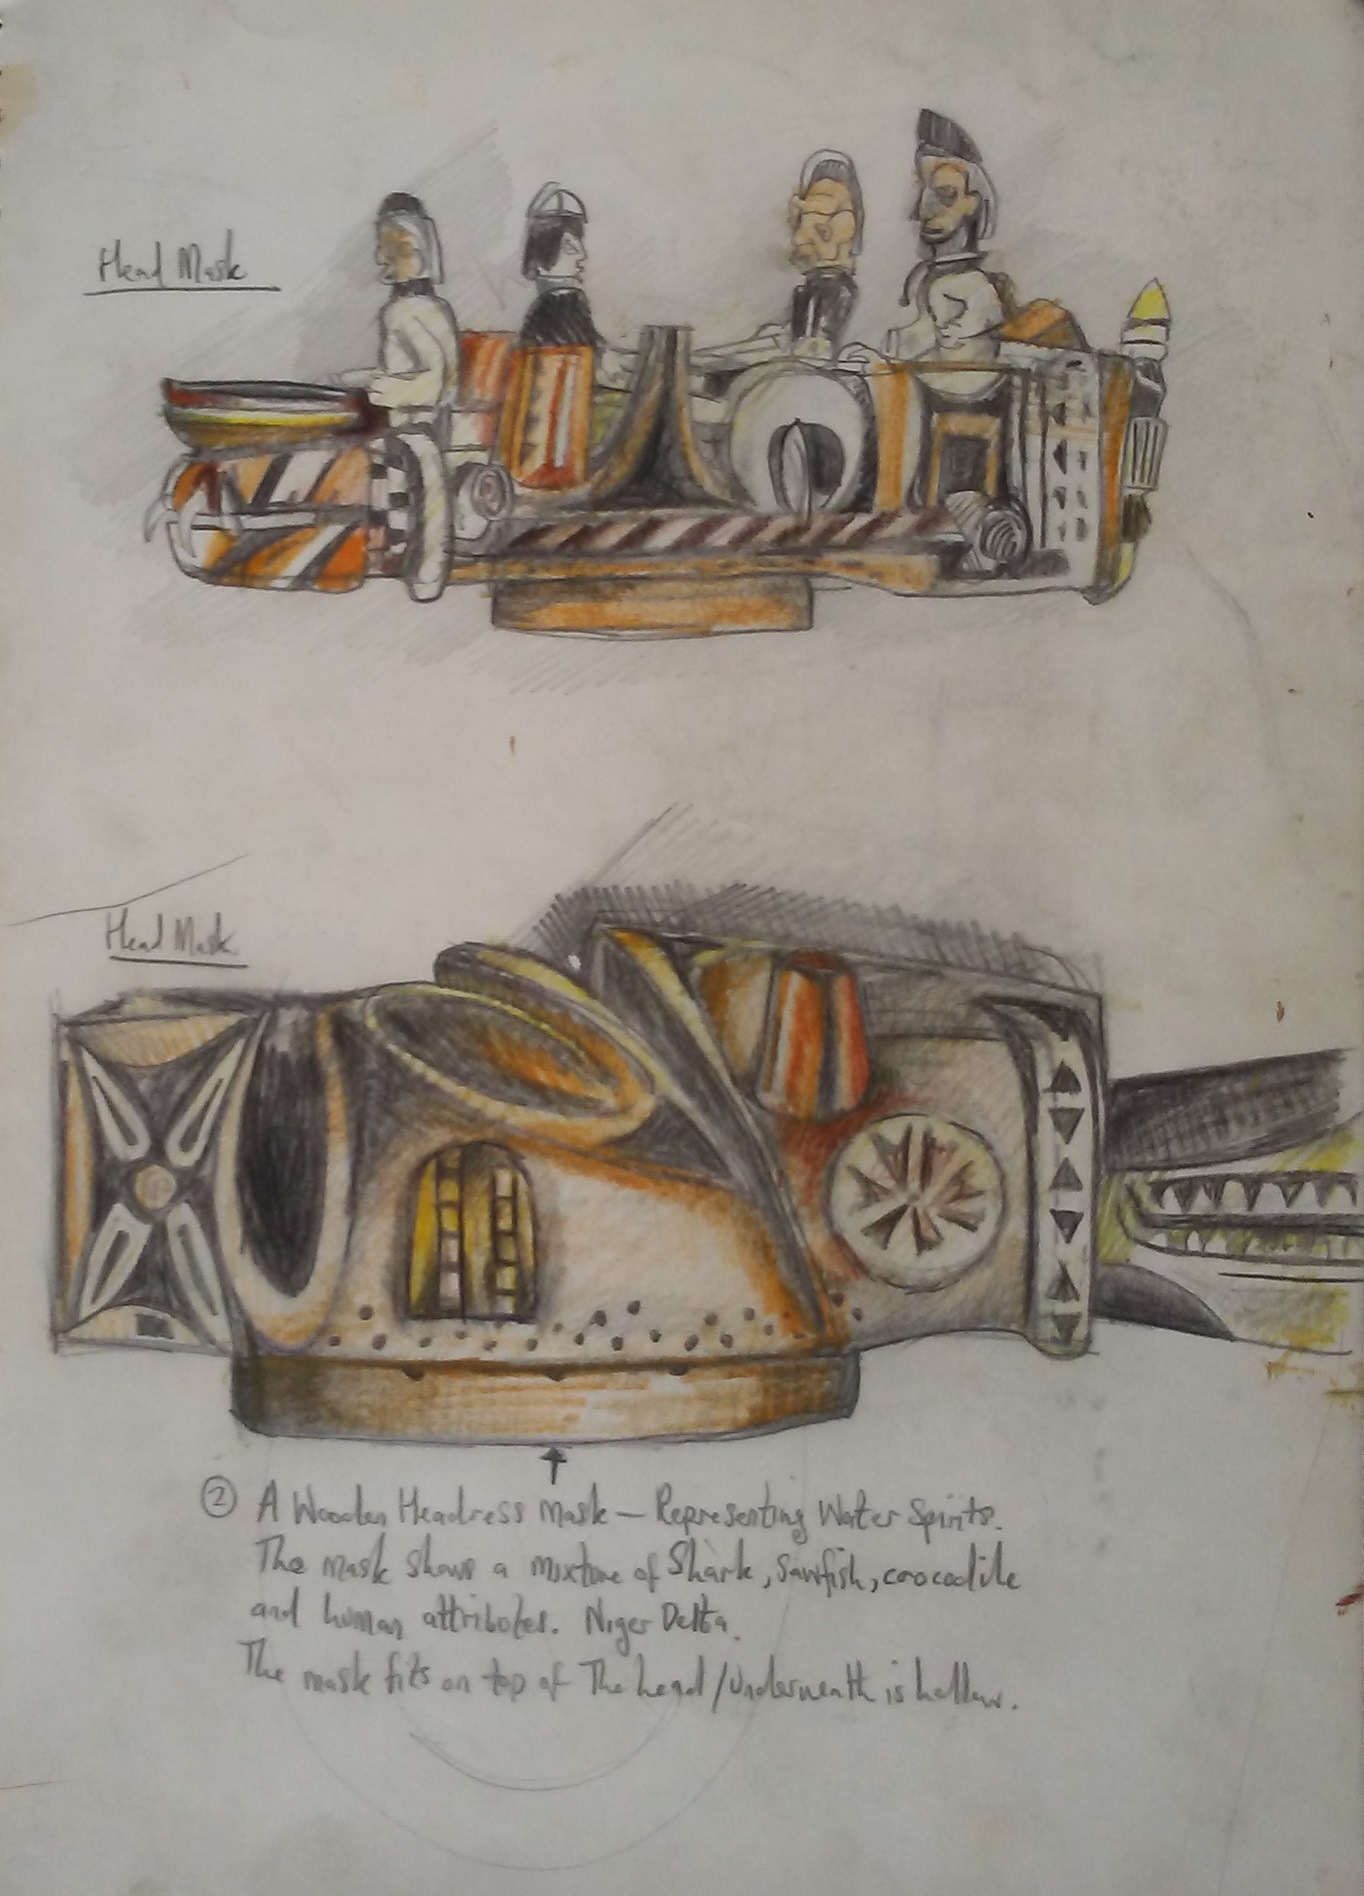 Head Mask
Head Mask
② A Wooden Headress Mask — Representing Water Spirits.
The mask shows a mixture of Shark, Sawfish, crocodile
and human attributes. Niger Delta.
The mask fits on top of The head / Underneath is hollow.